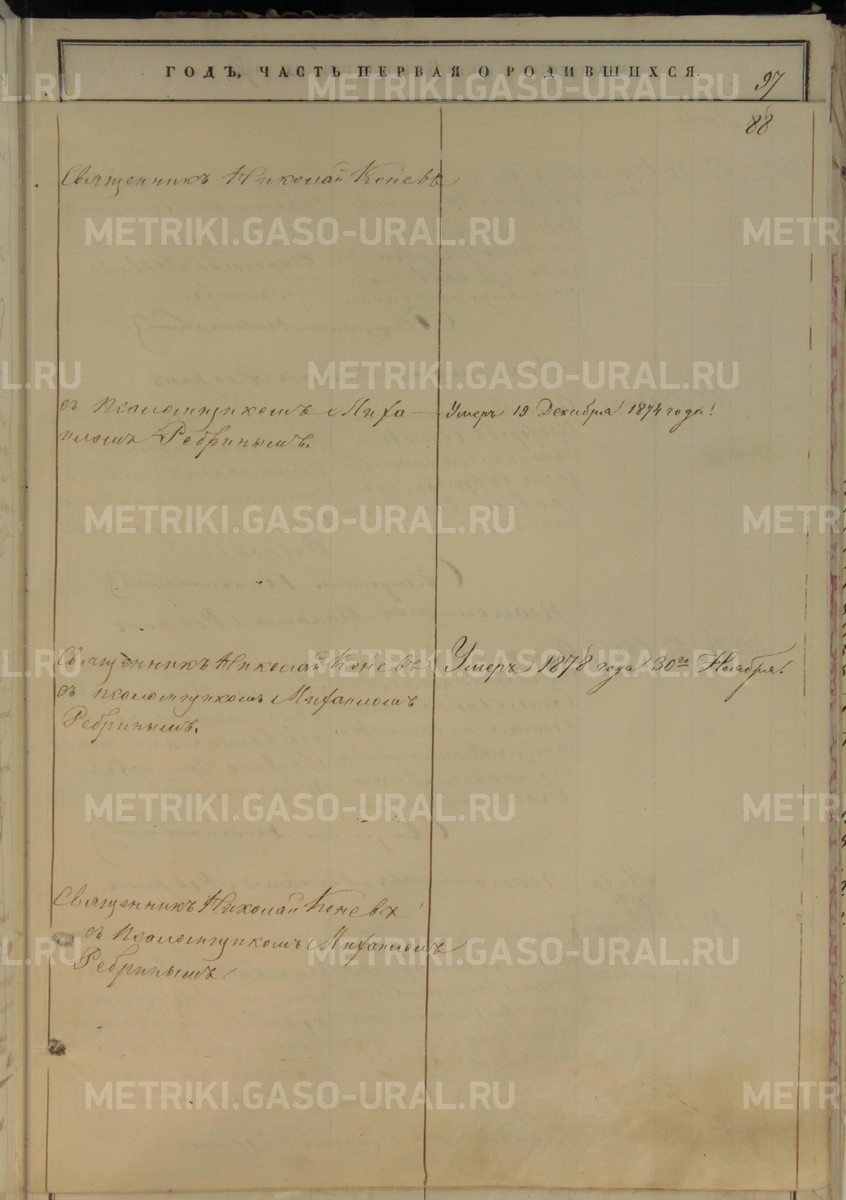 ГОДЪ, ЧАСТЬ ПЕРВАЯ О РОДИВШИХСЯ.
97
88
Священникъ Николай Коневъ
съ псаломщикомъ Миха
иломъ Ребринымъ.
Умеръ 19 Декабря 1874 года!
Священникъ Николай Коневъ
съ псаломщикомъ Михаиломъ
Ребринымъ.
Умеръ 1878 года 30го Ноября!
Священникъ Николай Коневъ
съ псаломщикомъ Михаиломъ
Ребринымъ.
METRIKI.GASO-URAL.RU